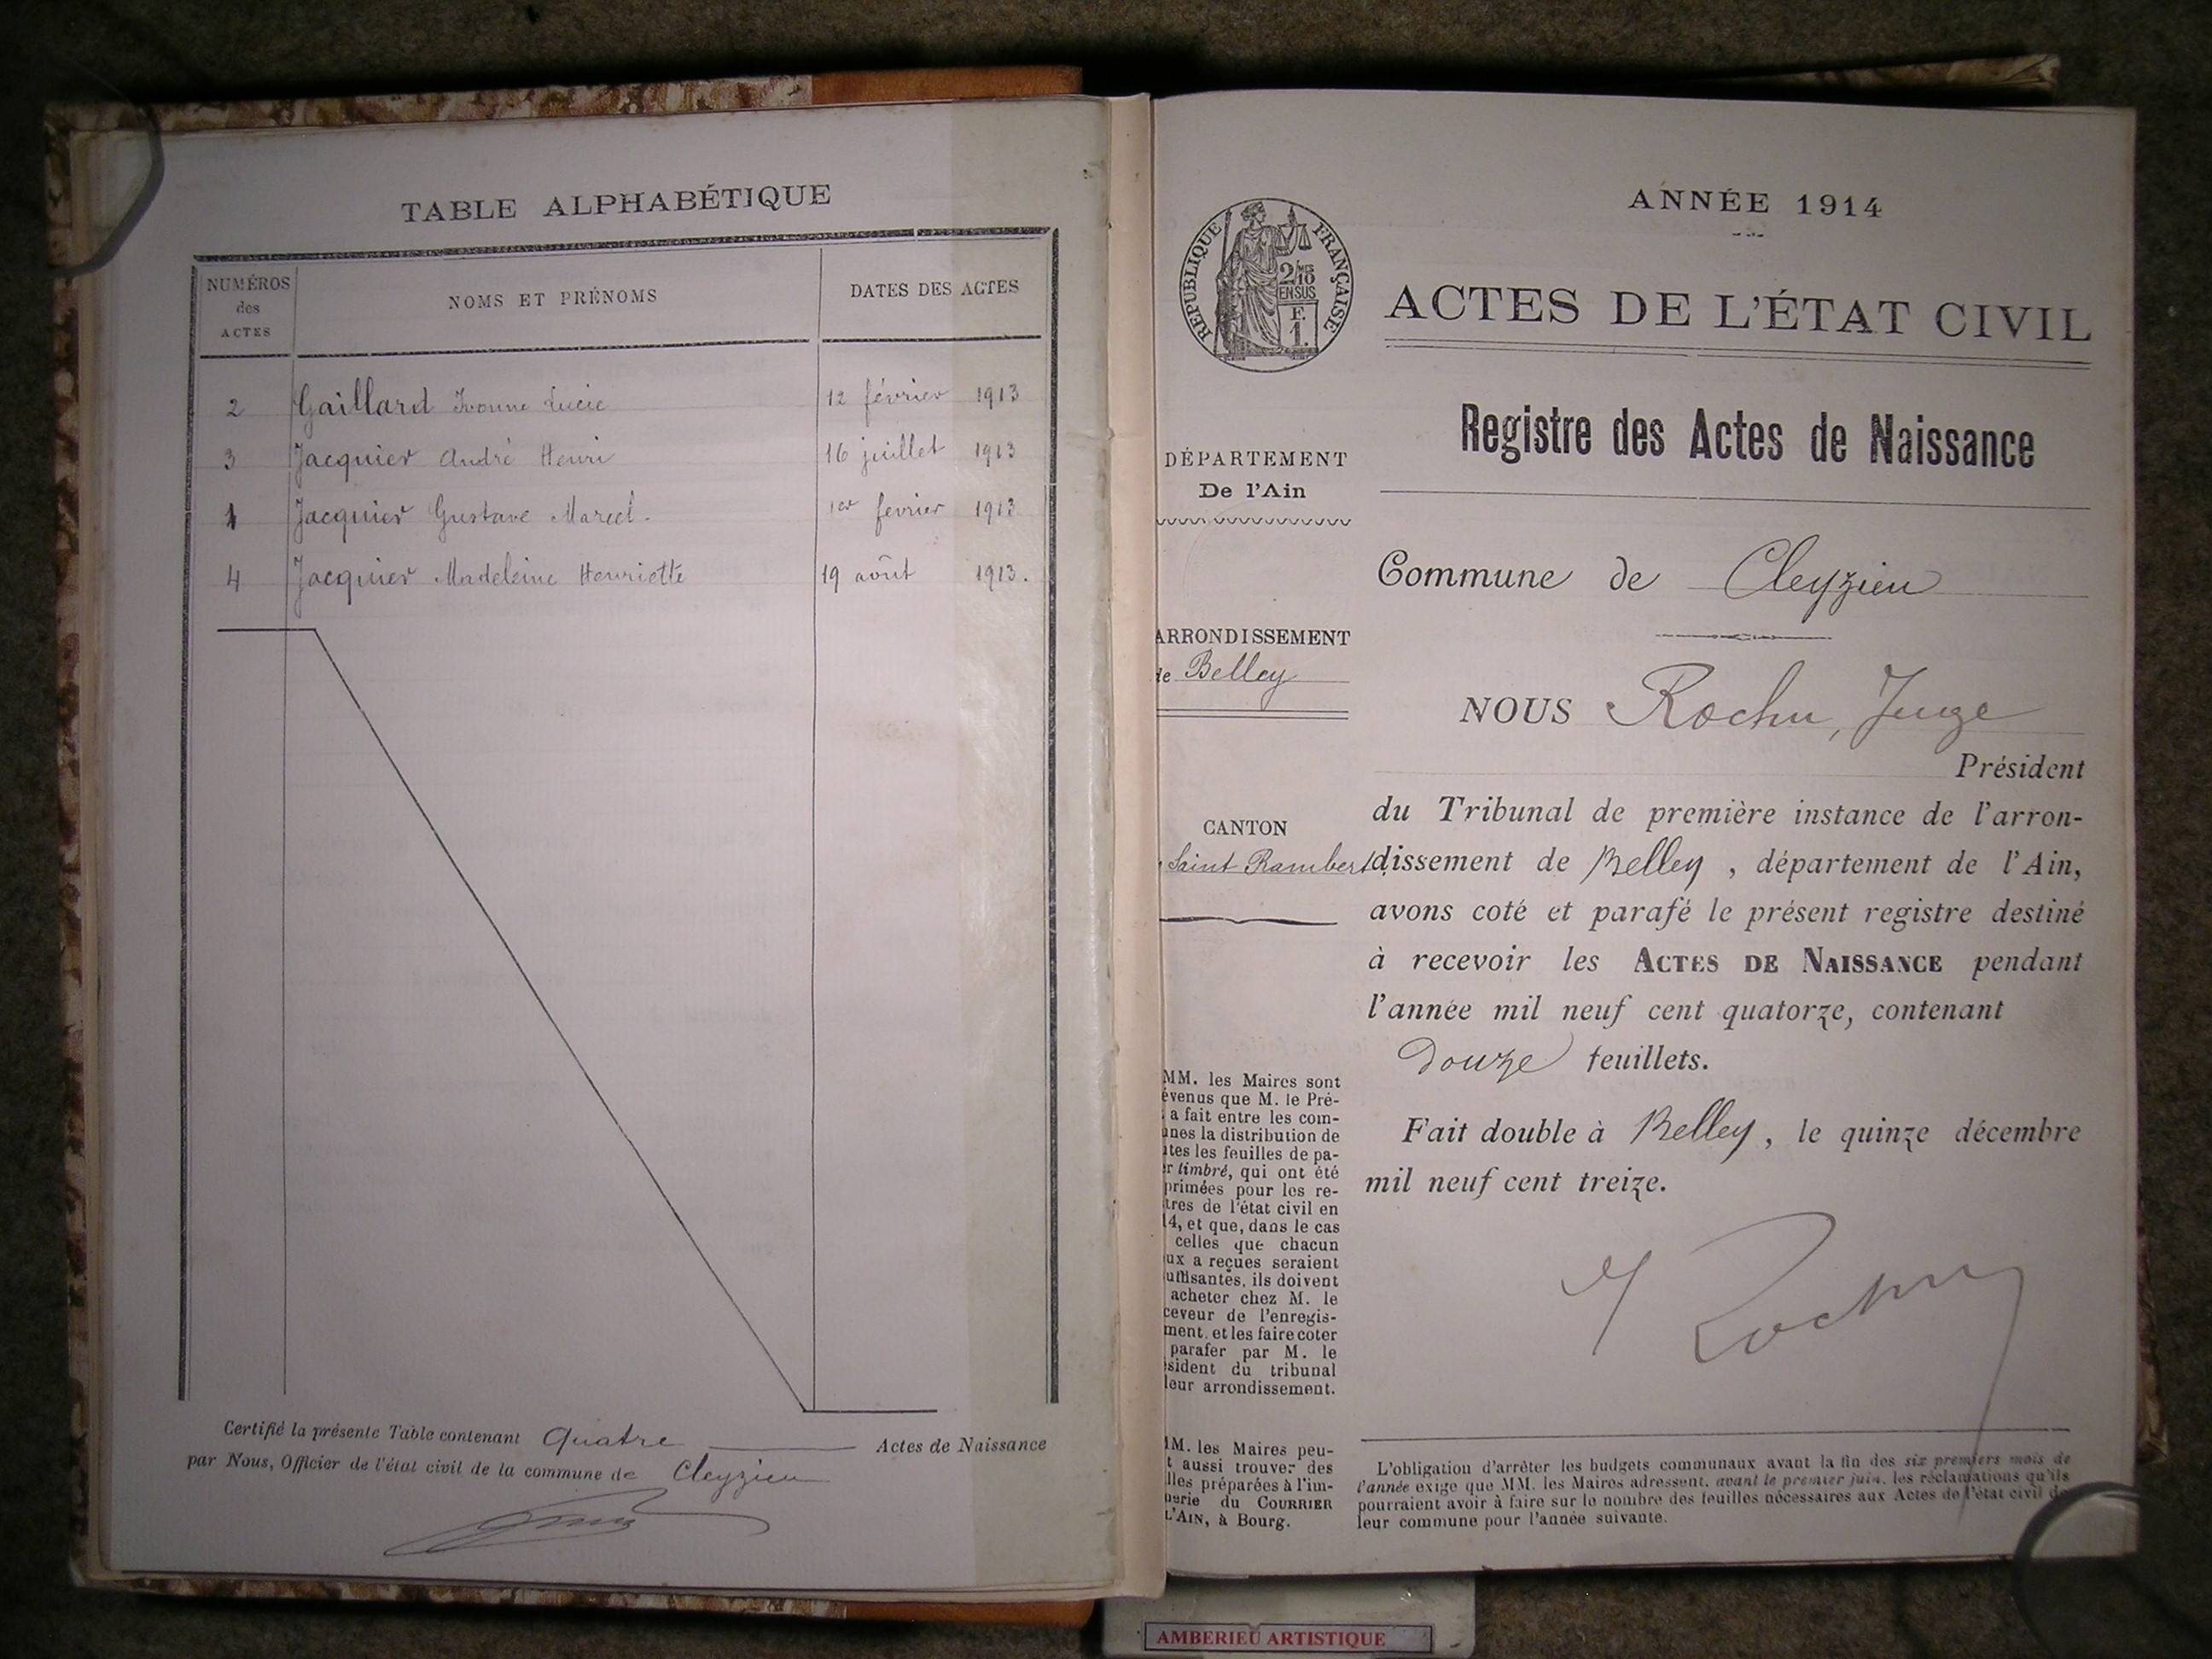 TABLE ALPHABÉTIQUE
NUMÉROS des ACTES
NOMS ET PRÉNOMS
DATES DES ACTES
2 Gaillard Ivonne Lucie 12 février 1913
3 Jacquier André Henri 16 juillet 1913
1 Jacquier Gustave Marcel 1er fevrier 1913
4 Jacquier Madeleine Henriette 19 août 1913.
Certifié la présente Table contenant Quatre Actes de Naissance
par Nous, Officier de l'état civil de la commune de Cleyzieu
RÉPUBLIQUE FRANÇAISE
2/10
EN SUS
F.
1.
DÉPARTEMENT
De l'Ain
ARRONDISSEMENT
de Belley
CANTON
Saint Rambert
MM. les Maires sont
évenus que M. le Pré-
a fait entre les com-
unes la distribution de
utes les feuilles de pa-
r timbré, qui ont été
primées pour les re-
tres de l'état civil en
14, et que, dans le cas
celles que chacun
ux a reçues seraient
uffisantes, ils doivent
acheter chez M. le
ceveur de l'enregis-
ment, et les faire coter
parafer par M. le
sident du tribunal
leur arrondissement.
MM. les Maires peu-
t aussi trouver des
lles préparées à l'im-
merie du COURRIER
L'AIN, à Bourg.
ANNÉE 1914
ACTES DE L'ÉTAT CIVIL
Registre des Actes de Naissance
Commune de Cleyzieu
NOUS Rochu, Juge
Président
du Tribunal de première instance de l'arron-
dissement de Belley, département de l'Ain,
avons coté et parafé le présent registre destiné
à recevoir les ACTES DE NAISSANCE pendant
l'année mil neuf cent quatorze, contenant
douze feuillets.
Fait double à Belley, le quinze décembre
mil neuf cent treize.
Rochu
L'obligation d'arrêter les budgets communaux avant la fin des six premiers mois de
l'année exige que MM. les Maires adressent, avant le premier juin, les réclamations qu'ils
pourraient avoir à faire sur le nombre des feuilles nécessaires aux Actes de l'état civil de
leur commune pour l'année suivante.
AMBERIEU ARTISTIQUE